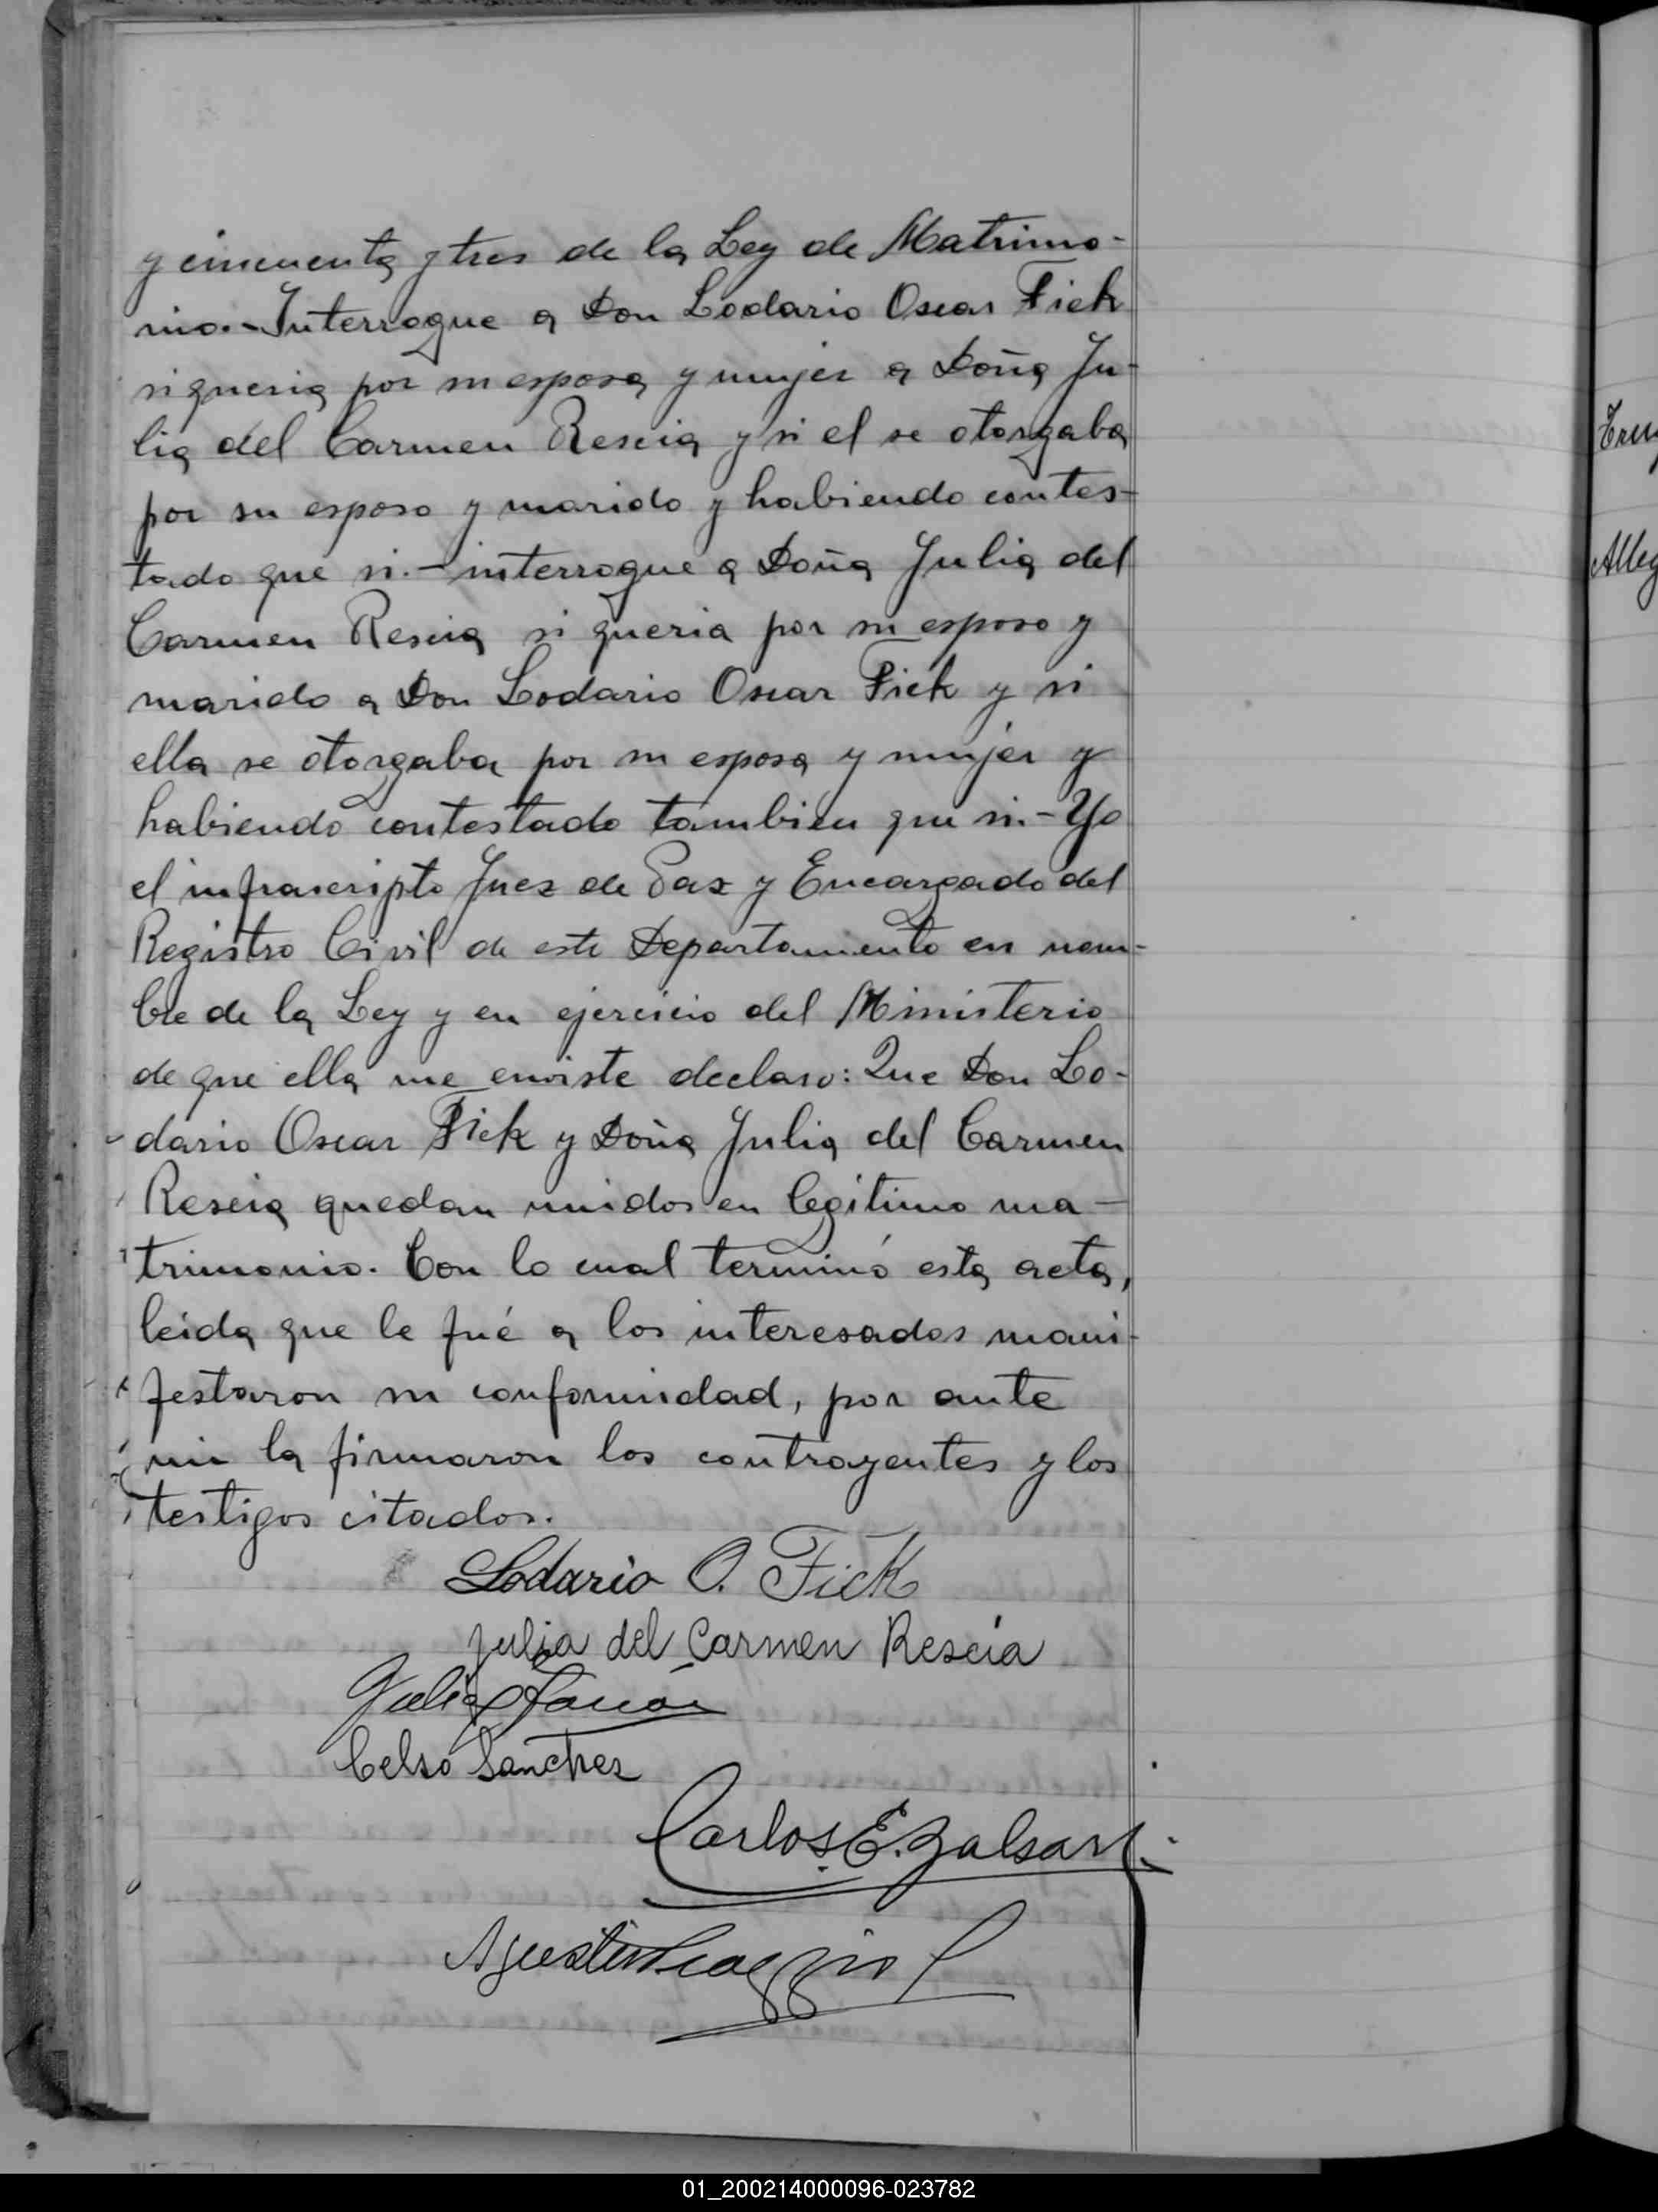 y cincuenta y tres de la Ley de Matrimo-
nio.- Interrogue a Don Lodario Oscar Fick
si queria por su esposa y mujer a Doña Ju-
lia del Carmen Rescia y si el se otorgaba
por su esposo y marido y habiendo contes-
tado que si.- interrogue a Doña Julia del
Carmen Rescia si queria por su esposo y
marido a Don Lodario Oscar Fick y si
ella se otorgaba por su esposa y mujer y
habiendo contestado tambien que si.- Yo
el infrascripto Juez de Paz y Encargado del
Registro Civil de este Departamento en nom-
bre de la Ley y en ejercicio del Ministerio
de que ella me enviste declaro: Que Don Lo-
dario Oscar Fick y Doña Julia del Carmen
Rescia quedan unidos en legitimo ma-
trimonio. Con lo cual terminó esta acta,
leida que le fué a los interesados mani-
festaron su conformidad, por ante
mi la firmaron los contrayentes y los
testigos citados.
Lodario O. Fick
Julia del Carmen Rescia
Celso Sanchez
Carlos E.
Agustin
01_200214000096-023782